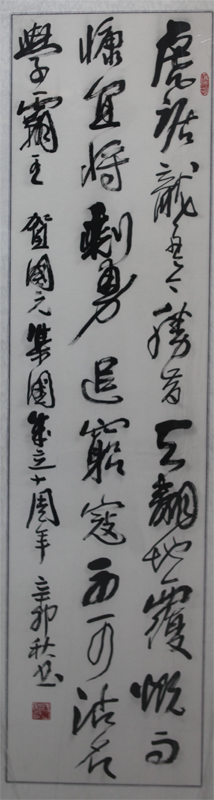 虎踞龍盤今勝昔天翻地覆慨而
慷宜将剩勇追窮寇不可沽名
學霸王 賀國元集團成立十周年 辛卯秋書